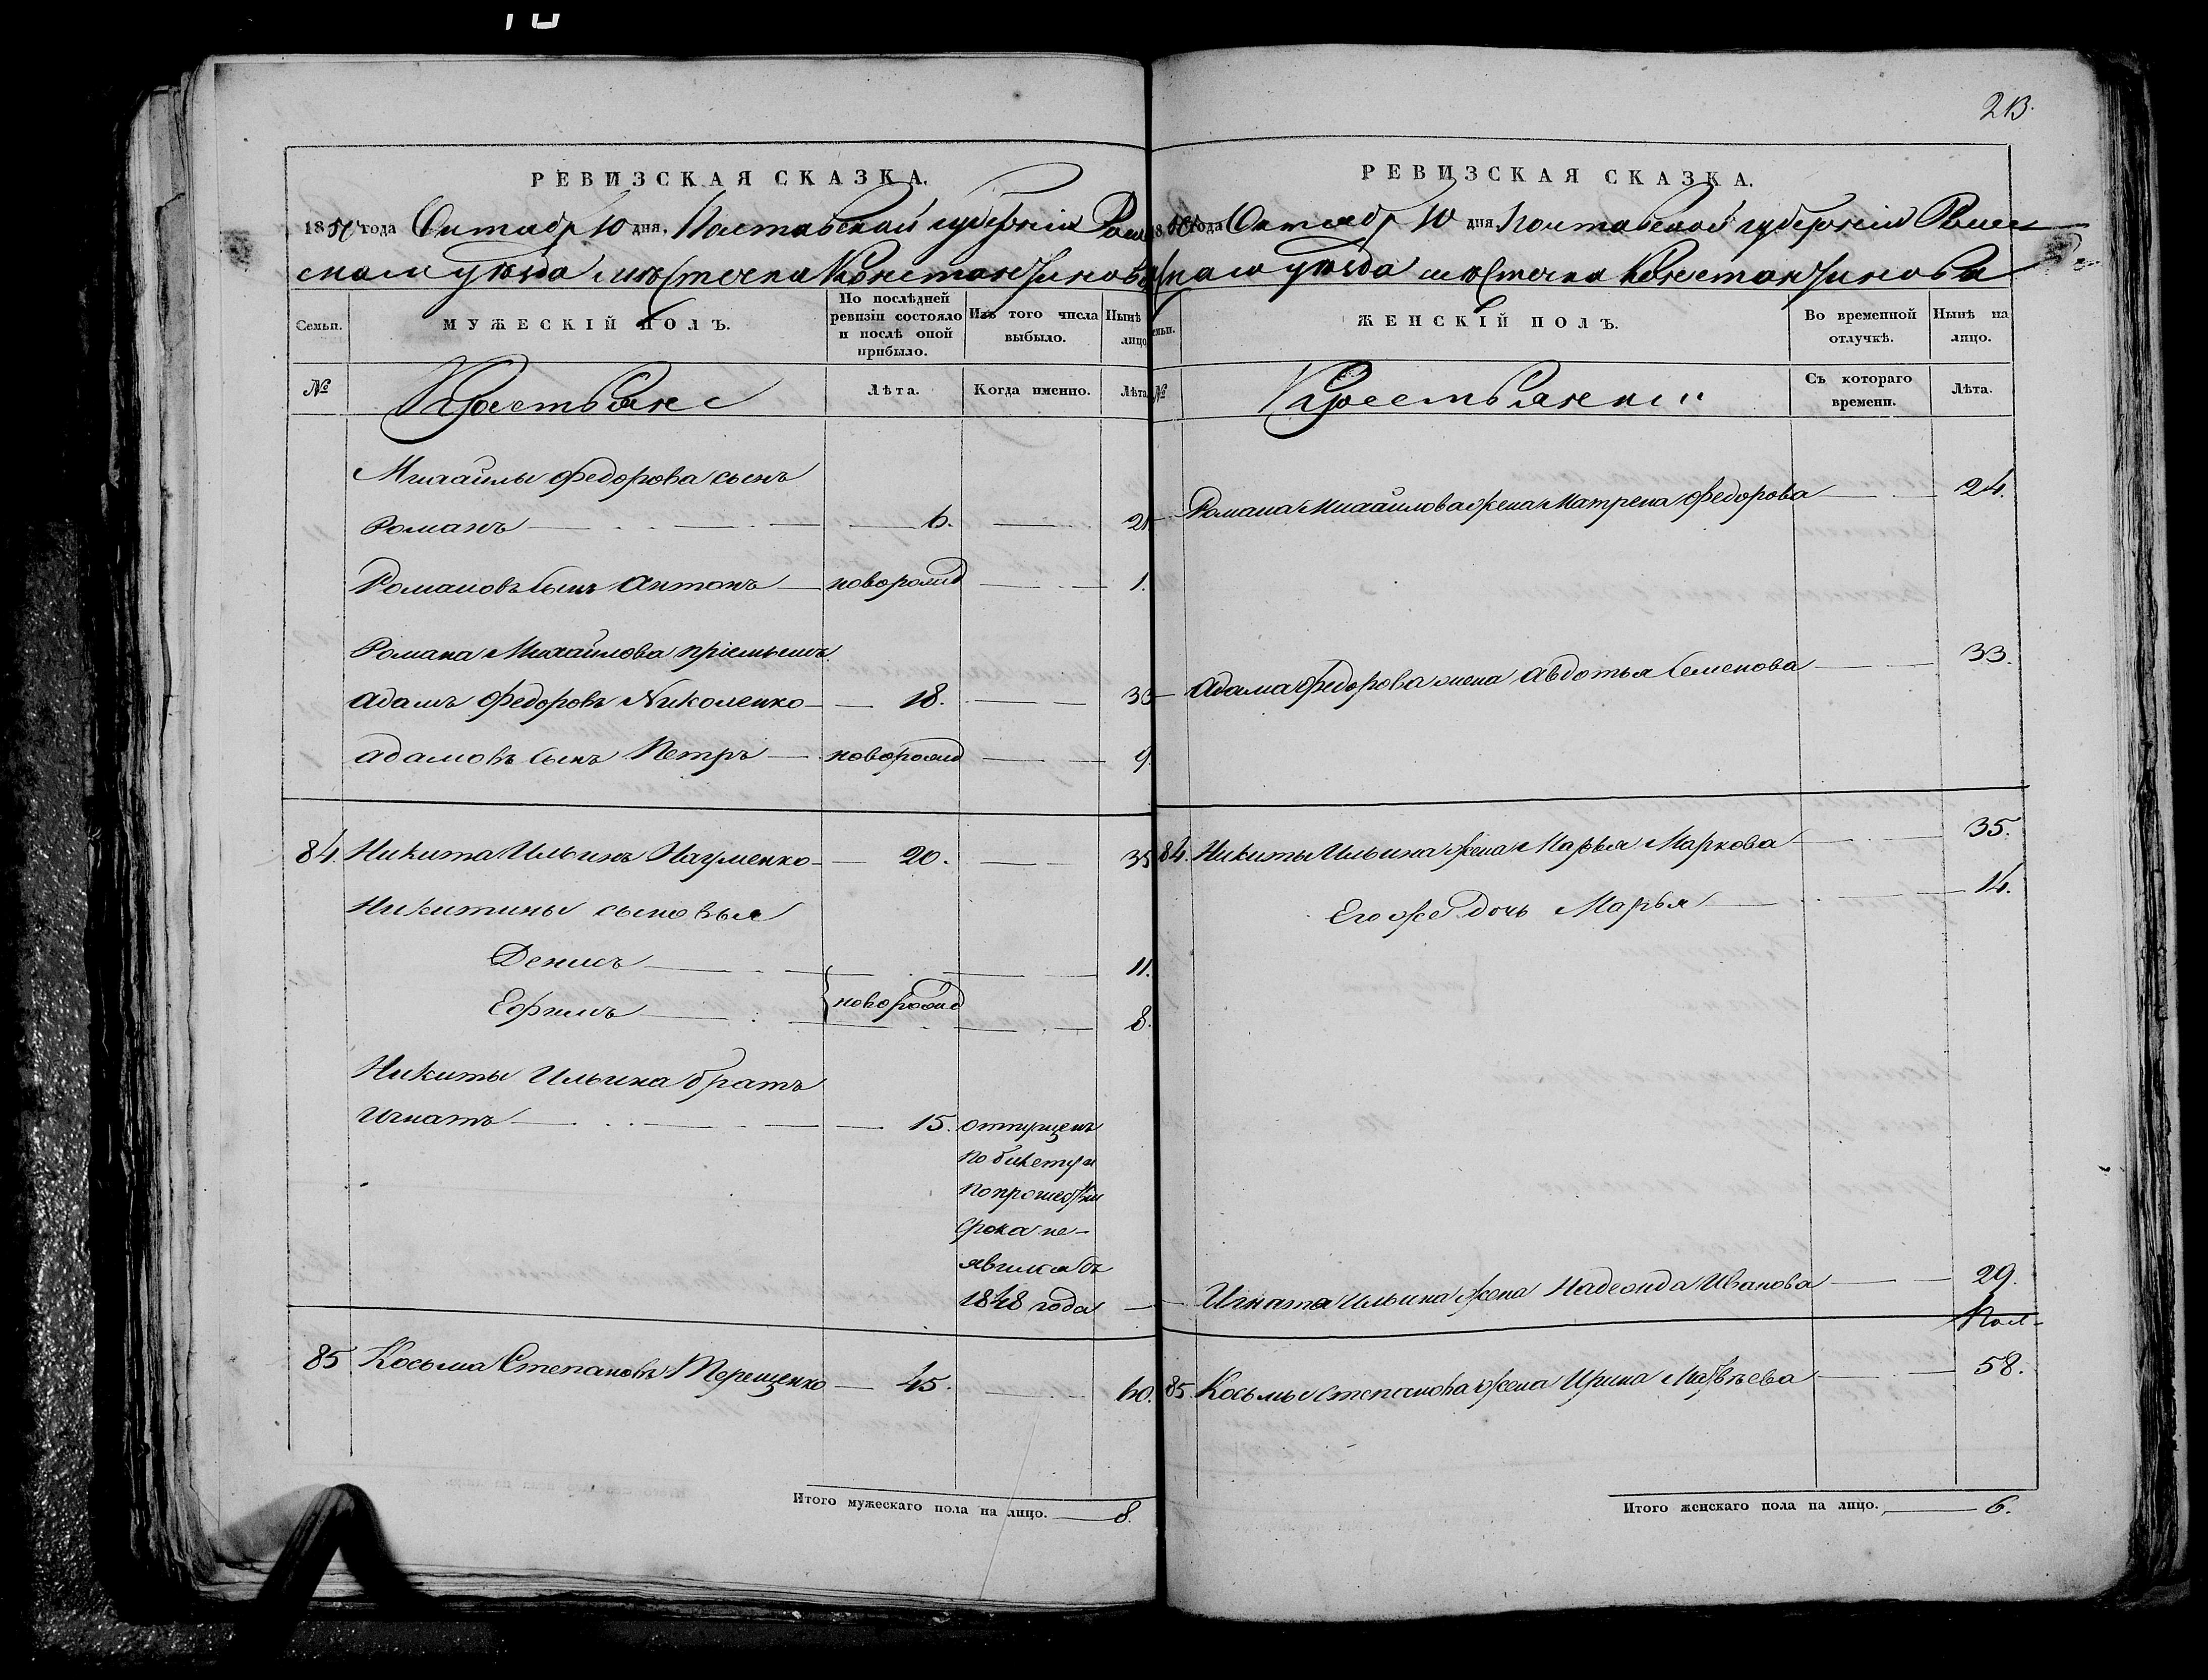 213.
РЕВИЗСКАЯ СКАЗКА.
1850 года Октябр 10 дня, Полтавской губерніи Ромен
скаго уѣзда мѣстечка Константинова
Семьи.
МУЖЕСКІЙ ПОЛЪ.
По послѣдней ревизіи состояло и послѣ оной прибыло.
Изъ того числа выбыло.
Нынѣ лицо
№
Крестьяне
Лѣта.
Когда именно.
Лѣта
Михайлы Федорова сынъ
Романъ 6. 21
Романовъ сынъ Антонъ новорожд 1.
Романа Михайлова пріемышъ
Адамъ Федоровъ Николенко 18. 33
Адамовъ сынъ Петръ новорожд 9
84. Никита Ильинъ Науменко 20. 35
Никитины сыновья
Денисъ 11.
новорожд
Ефимъ 8.
Никиты Ильина братъ
Игнатъ 15. отпущенъ
по билету и
по прошествіи
срока не-
явился съ
1848 года
85 Косьма Степановъ Терещенко 45. 60.
Итого мужескаго пола на лицо. 8.
РЕВИЗСКАЯ СКАЗКА.
1850 года Октябр 10 дня Полтавской губерніи Ромен
скаго уѣзда мѣстечка Константинова
семьи.
ЖЕНСКІЙ ПОЛЪ.
Во временной отлучкѣ.
Нынѣ на лицо.
№
Крестьянки
Съ котораго времени.
Лѣта.
Романа Михайлова жена Матрена Федорова 24.
Адама Федорова жена Авдотья Семенова 33.
84. Никиты Ильина жена Марья Маркова 35.
Его же дочь Марья 14.
Игната Ильина жена Надежда Иванова 29.
85. Косьмы Степанова жена Ирина Матвѣева 58.
Итого женскаго пола на лицо. 6.